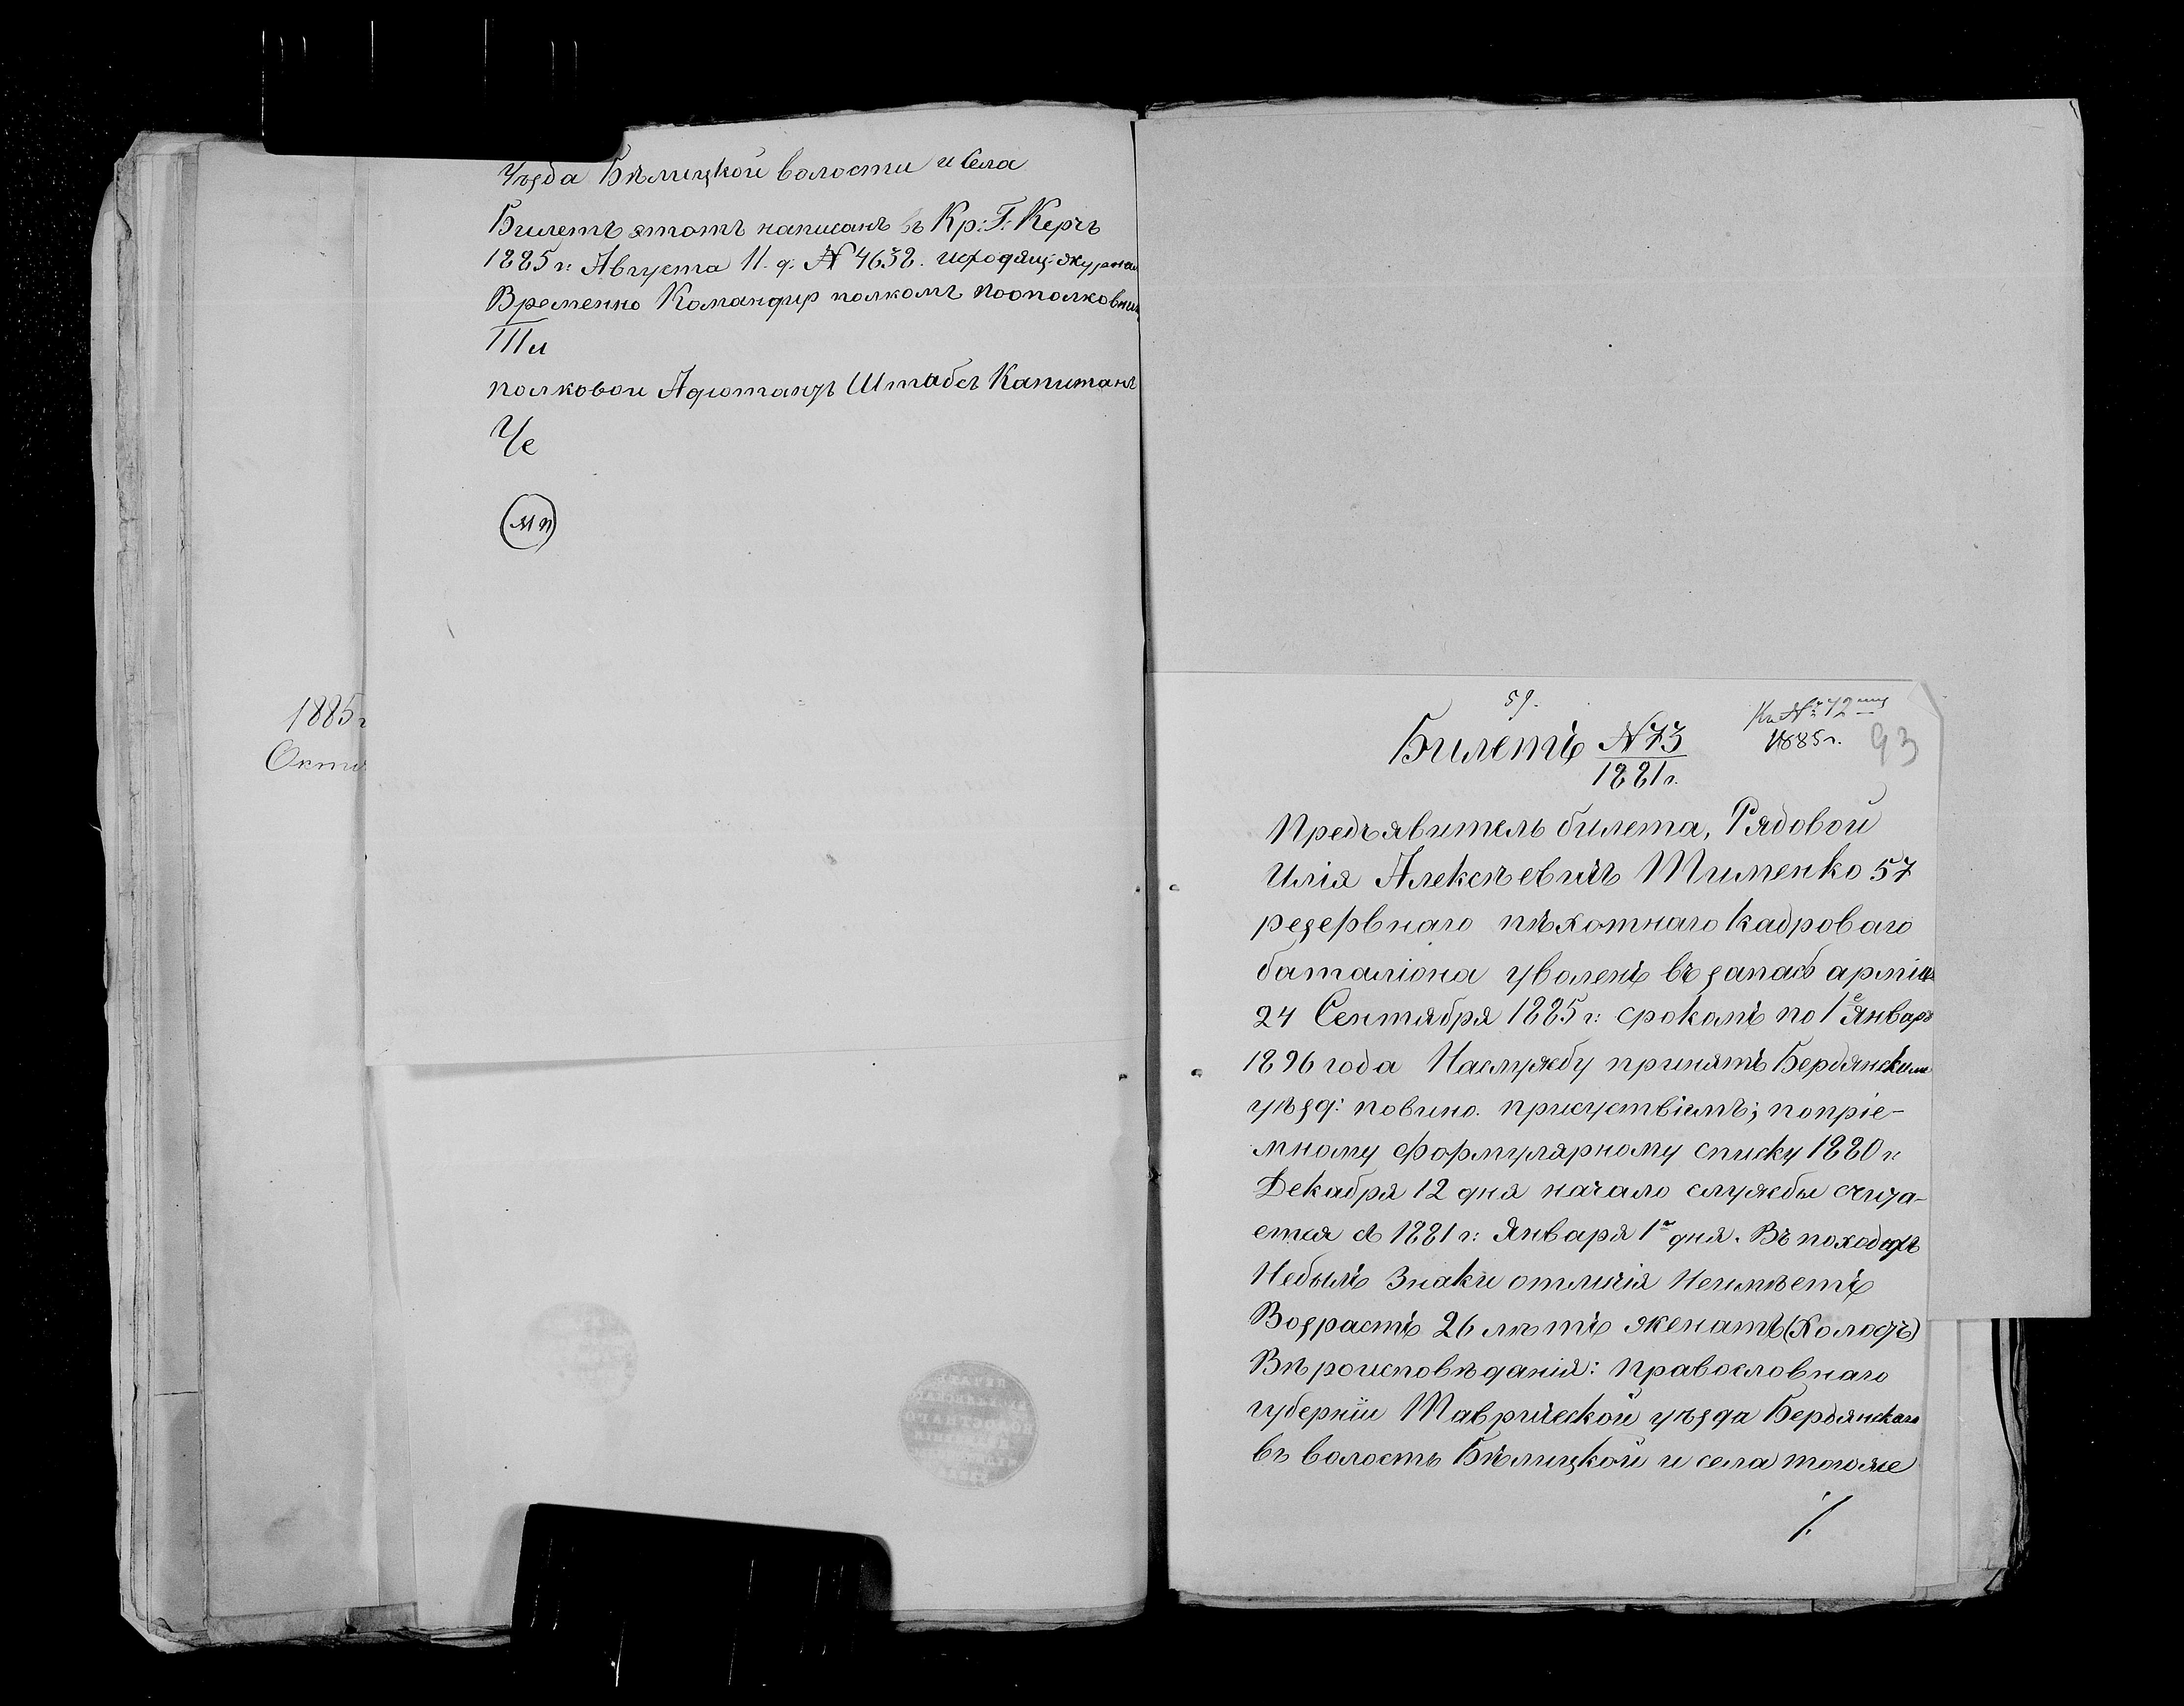 Уѣзда Бѣлицкой волости и села
Билетъ этотъ написанъ въ Кр: Г: Керчъ
1885 г: Августа 11. д. № 4638. исходящ: журнал
Временно Командир полкомъ подполковник
Ши
полковои Адютандъ Штабсъ Капитанъ
Че
МП
1885 г
Октя
59.
Билетъ № 73
1881 г.
Къ № 42
1885 г.
93
Предъявитель билета, Рядовой
Илія Алексѣевичъ Тименко 57
резервнаго пѣхотнаго кадроваго
баталіона уволенъ въ запасъ арміи
24 Сентября 1885 г: срокомъ по 1е Январ
1896 года Наслужбу принятъ Бердянскимъ
уѣзд: повино. присуствіемъ; попріе-
мному формулярному списку 1880 г.
Декабря 12 дня начало службы счита-
ется съ 1881 г: Января 1го дня. Въ походахъ
Небылъ Знаки отличія Неимѣетъ
Возрастъ 26 лѣтъ женатъ (Холостъ)
Вѣроисповѣданія: Православнаго
губерніи Таврической уѣзда Бердянскаго
въ волость Бѣлицкой и села тогоже
/.